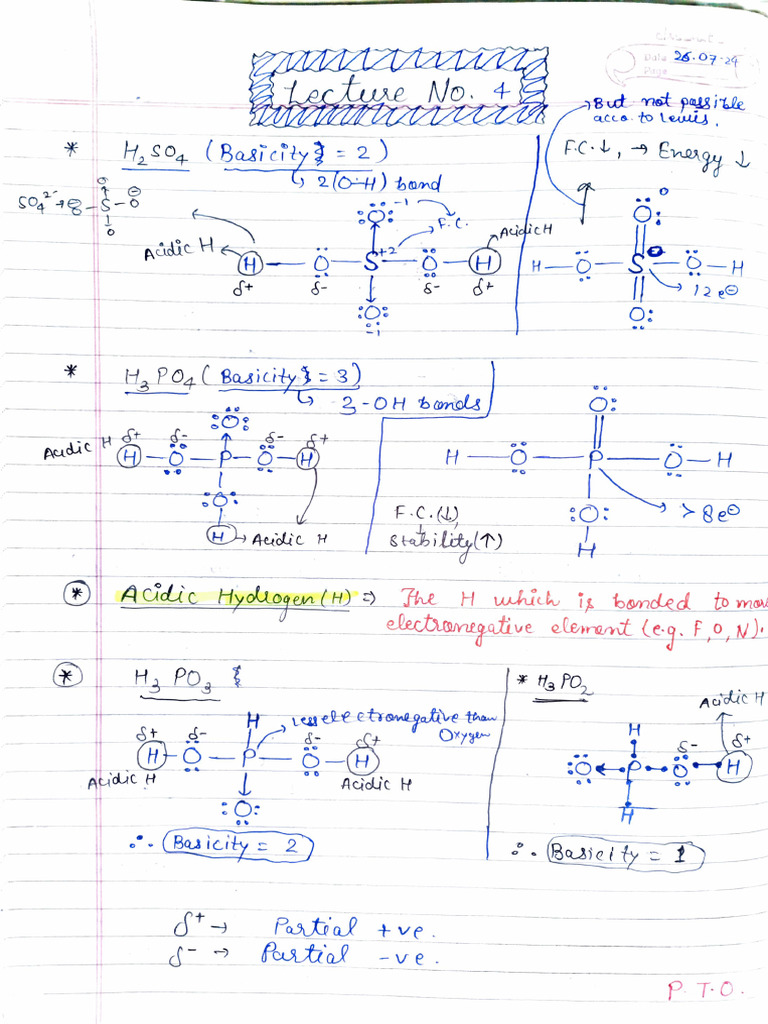 Date 26.07.24
Page
Lecture No. 4
But not possible
acco. to Lewis.
* H₂SO₄ (Basicity = 2)
↳ 2(O-H) bond
F.C.↓, → Energy ↓
SO₄²⁻ →
O
S – O ⊖
O
Acidic H
-1
:O:
F.C.
Acidic H
H – O – S +2 – O – H
δ+ δ- δ- δ+
:O:
-1
:O:
H – O – S – O – H
12e⊖
:O:
* H₃PO₄ (Basicity = 3)
↳ 3-OH bonds
:O:
Acidic H
δ+ δ- δ- δ+
H – O – P – O – H
:O:
H → Acidic H
:O:
H – O – P – O – H
> 8e⊖
:O:
H
F.C.(↓),
Stability(↑)
* Acidic Hydrogen(H) ⇒ The H which is bonded to mor
electronegative element (e.g. F,O,N).
* H₃PO₃
H
Less electronegative than
Oxygen
δ+ δ- δ- δ+
H – O – P – O – H
Acidic H Acidic H
:O:
∴ Basicity = 2
* H₃PO₂
Acidic H
H
δ- δ+
:O ← P – O – H
H
∴ Basicity = 1
δ+ → Partial +ve.
δ- → Partial -ve.
P.T.O.